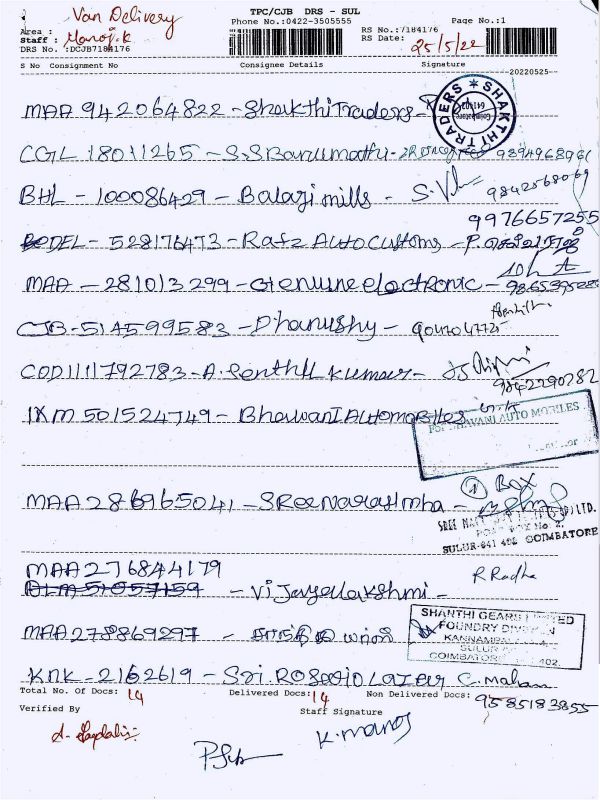 Van Delivery
TPC/CJB DRS - SUL
Phone No.:0422-3505555
Page No.:1
Area :
Staff : Manoj.K
DRS No. :DCJB7184176
RS No.:7184176
RS Date: 25/5/22
S No Consignment No Consignee Details Signature
20220525
MAA 942064822 - Shakthi Traders -
SHAKTHI TRADERS
Coimbatore
641402
CGL 18011265 - S.S Banumathi -
9894968961
BHL - 100086429 - Balaji mills -
9842568069
9976657255
DEL - 528176473 - Rafz Autocustoms - P.
MAA - 281013299 - Genuine electronic -
CJB - 514599583 - Dhanushy -
COD1111792783 - A. Senthil Kumar -
9842290782
IKM 501524749 - Bhawani Automobiles
BHAVANI AUTO MOBILES
MAA 286965041 - SReenarasimha -
① Box
POST BOX No: 2,
SULUR-641 402 COIMBATORE
MAA 276844179
- Vijayalakshmi -
R Radha
MAA 278869297 -
SHANTHI GEARS LIMITED
FOUNDRY DIVISION
KANNAMPALAYAM
SULUR
COIMBATORE 402.
KNK - 2162619 - Sri. Rosario Lazer C. Mohan
Total No. Of Docs: 14 Delivered Docs: 14 Non Delivered Docs:
9585183855
Verified By
Staff Signature
K. Manoj